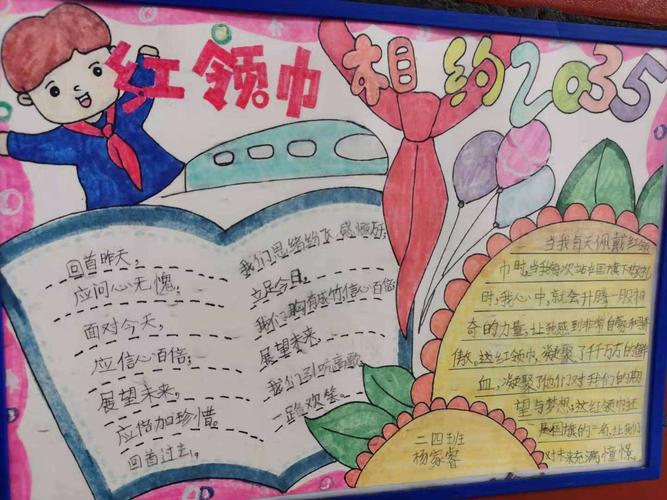 红领巾 相约2035
回首昨天,
应问心无愧,
面对今天,
应信心百倍,
展望未来,
应倍加珍惜。
回首过去,
我们思绪纷飞,感慨万
立足今日,
我们胸有成竹,信心百倍
展望未来,
我们引吭高歌
一路欢笑。
当我每天佩戴红领
巾时,当我每次站在国旗下敬礼
时,我心中,就会升腾一股神
奇的力量,让我感到非常自豪和骄
傲,这红领巾,凝聚了千千万万的鲜
血,凝聚了他们对我们的期
望与梦想;这红领巾还
是国旗的一角,让我们
对未来充满憧憬。
二四班
杨家睿